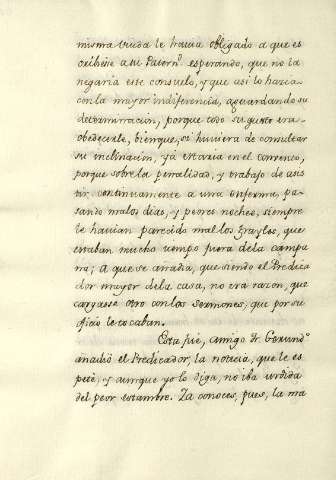 misma viuda le havia obligado a que es
cribiese a su Patern.ᵈ esperando, que no la
negaria este consuelo, y que asi lo hacia
con la mayor indiferencia, aguardando su
determinacion, porque todo su gusto era
obedecerle, bien que, si huviera de consultar
su inclinacion, ya estaria en el convento,
porque sobre la penalidad, y trabajo de asis
tir continuamente a una enferma, pa
sando malos dias, y peores noches, siempre
le havian parecido mal los frayles, que
estaban mucho tiempo fuera de la campa
na; A que se añadia, que siendo el Predica
dor mayor de la casa, no era razon, que
cargasse otro con los Sermones, que por su
oficio le tocaban.
Esta fue, amigo fr. Gerund.º
añadio el Predicador, la noticia, que le es
peté, y aunque yo lo diga, no iba urdida
del peor estambre. Ya conoces, pues, la ma